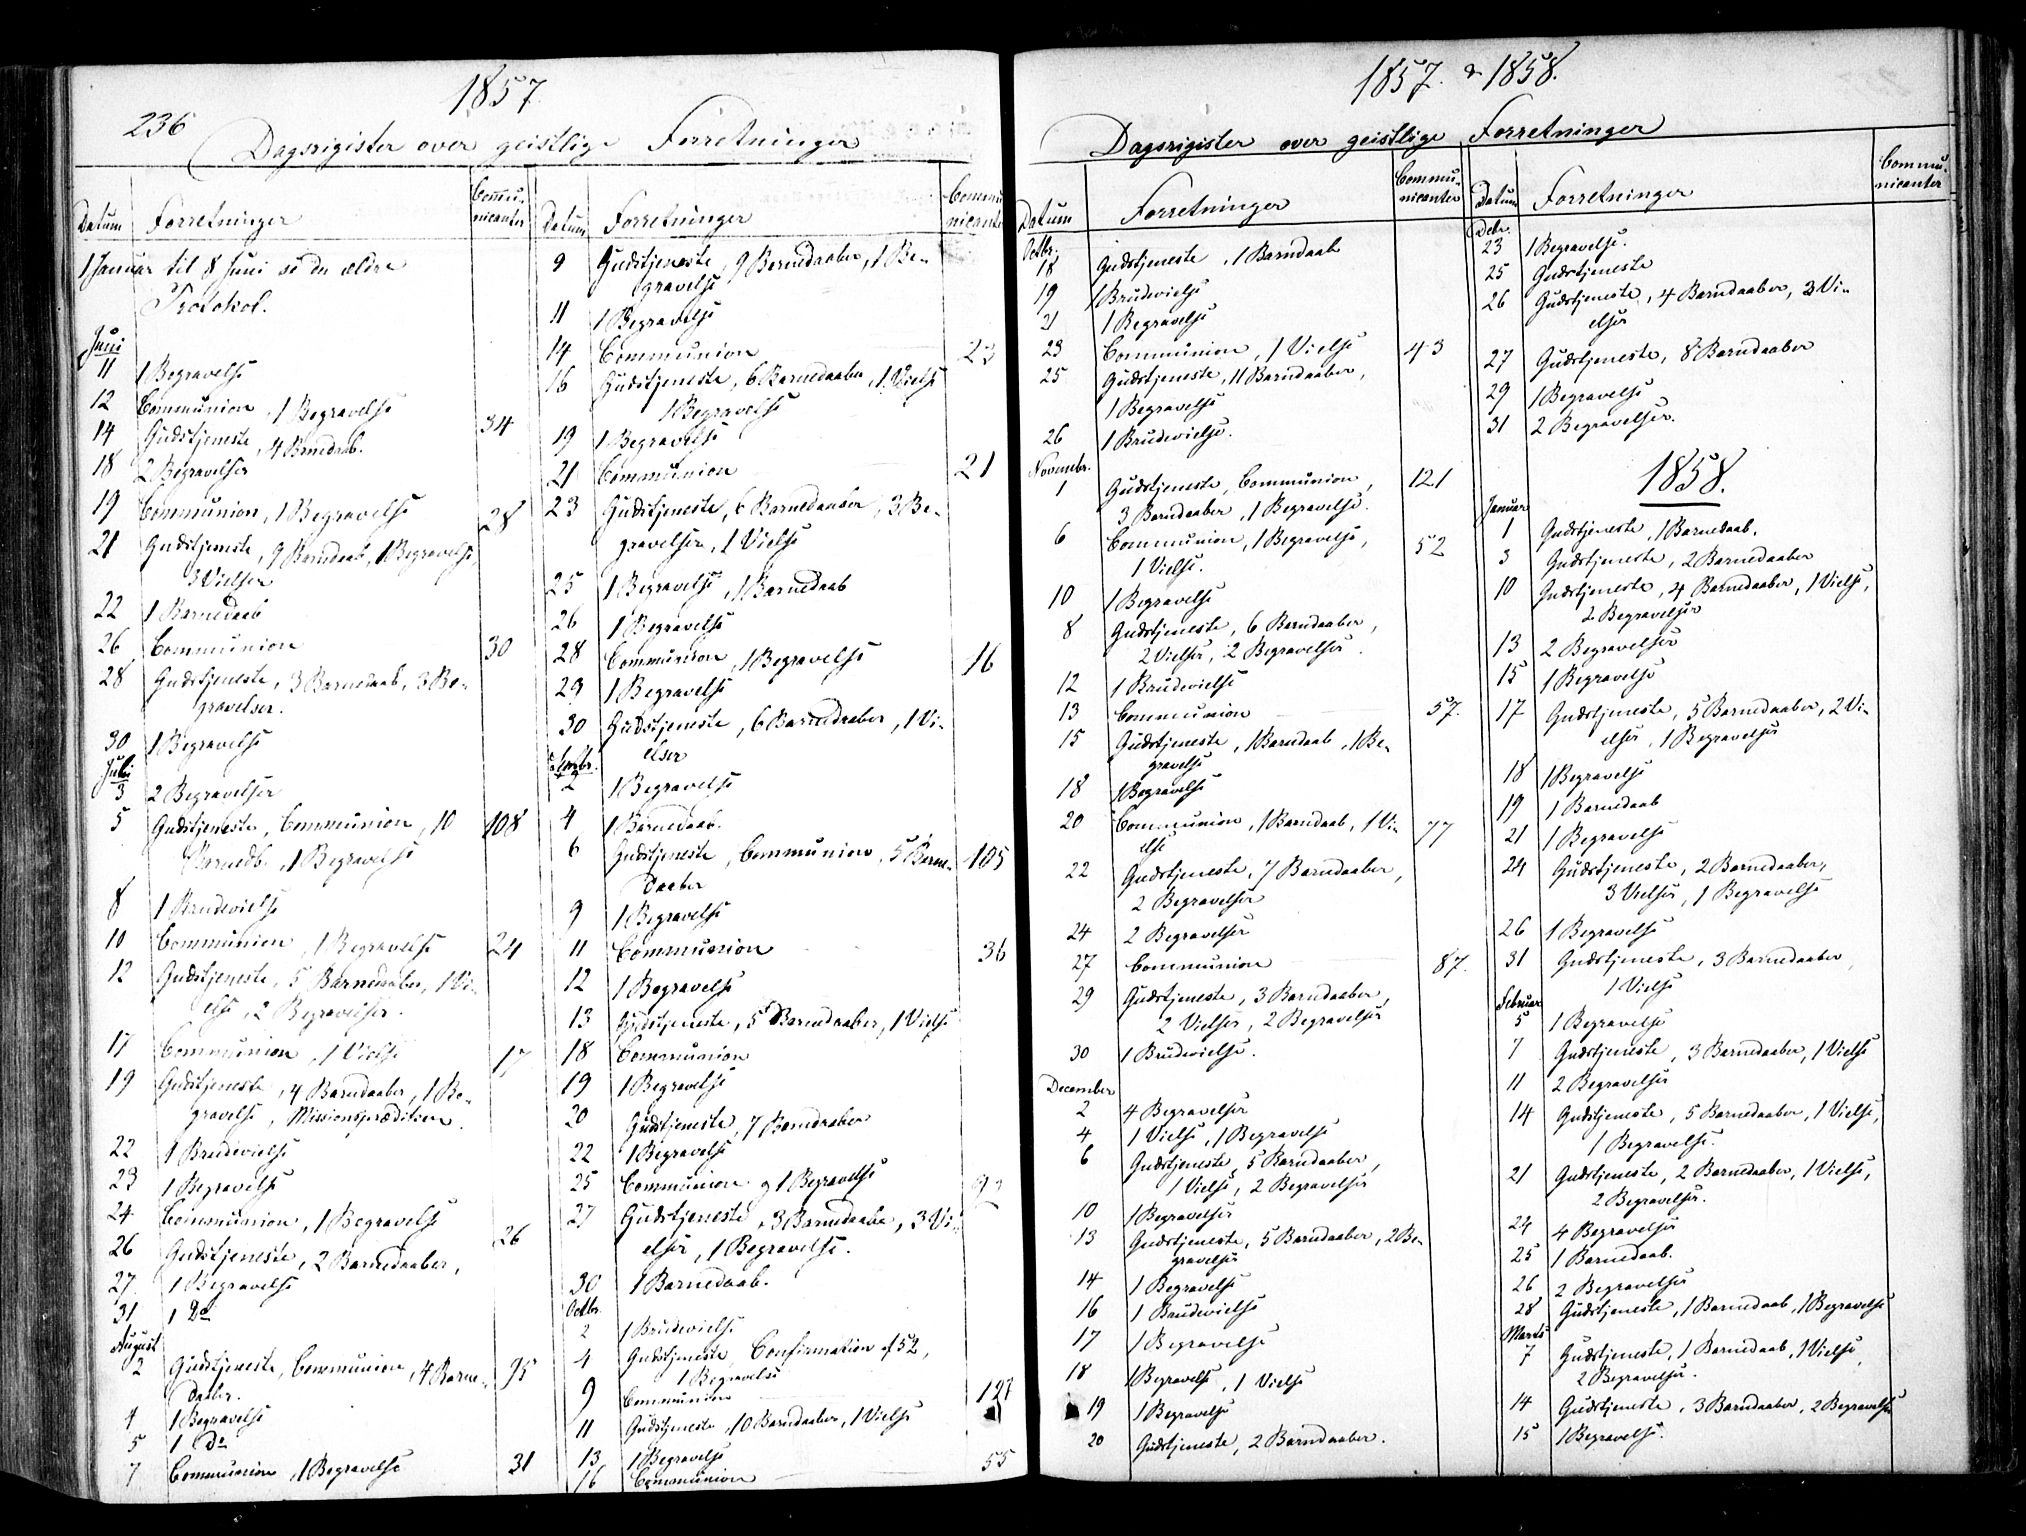 236
1857
Dagsregister over geistlige Forretninger
Datum
Forretninger
Commu-
nicanter
1 Januar til 8 Juni se den ældre
Protokol.
Juni
11 1 Begravelse
12 Communion, 1 Begravelse 34
14 Gudstjeneste, 4 Barnedaab.
18 2 Begravelser
19 Communion, 1 Begravelse 28
21 Gudstjeneste, 9 Barnedaab, 1 Begravelse,
3 Vielser
22 1 Barnedaab
26 Communion 30
28 Gudstjeneste, 3 Barnedaab, 3 Be-
gravelser.
30 1 Begravelse
Juli
3 2 Begravelser
5 Gudstjeneste, Communion, 10 108
Barnedb., 1 Begravelse
8 1 Brudevielse
10 Communion, 1 Begravelse 24
12 Gudstjeneste, 5 Barnedaaber, 1 Vi-
else, 2 Begravelser.
17 Communion, 1 Vielse 17
19 Gudstjeneste, 4 Barndaaber, 1 Be-
gravelse, Missionsprædiken
22 1 Brudevielse
23 1 Begravelse
24 Communion, 1 Begravelse 26
26 Gudstjeneste, 2 Barnedaaber,
27 1 Begravelse
31 1 Do
August
2 Gudstjeneste, Communion, 4 Barne- 95
daaber.
4 1 Begravelse
5 1 Do
7 Communion, 1 Begravelse 31
Datum
Forretninger
Commu
nicante
9 Gudstjeneste, 9 Barnedaaber, 1 Be-
gravelse
11 1 Begravelse
14 Communion 23
16 Gudstjeneste, 6 Barnedaaber, 1 Vielse
1 Begravelse
19 1 Begravelse
21 Communion 21
23 Gudstjeneste, 6 Barnedaaber, 3 Be-
gravelser, 1 Vielse
25 1 Begravelse, 1 Barnedaab
26 1 Begravelse
28 Communion, 1 Begravelse 16
29 1 Begravelse
30 Gudstjeneste, 6 Barnedaaber, 1 Vi-
elser
Septbr.
2 1 Begravelse
4 1 Barnedaab.
6 Gudstjeneste, Communion, 5 Barne- 105
daaber
9 1 Begravelse
11 Communion 36
12 1 Begravelse
13 Gudstjeneste, 5 Barnedaaber, 1 Vielse
18 Communion
19 1 Begravelse
20 Gudstjeneste, 7 Barndaaber
22 1 Begravelse
25 Communion og 1 Begravelse 92
27 Gudstjeneste, 3 Barndaabe, 3 Vi-
elser, 1 Begravelse.
30 1 Barnedaab.
Octbr.
2 1 Brudevielse
4 Gudstjeneste, Confirmation af 52,
1 Begravelse
9 Communion 127
11 Gudstjeneste, 10 Barndaaber, 1 Vielse
13 1 Begravelse
16 Communion 55
1857. & 1858.
Dagsregister over geistlige Forretninger
Datum
Forretninger
Commu-
nicanter
Octbr.
18 Gudstjeneste, 1 Barndaab
19 1 Brudevielse
21 1 Begravelse
23 Communion, 1 Vielse 43
25 Gudstjeneste, 11 Barndaaber,
1 Begravelse
26 1 Brudevielse.
Novembr.
1 Gudstjeneste, Communion, 121
3 Barndaaber, 1 Begravelse.
6 Communion, 1 Begravelse, 52
1 Vielse.
10 1 Begravelse
8 Gudstjeneste, 6 Barndaaber,
2 Vielser, 2 Begravelser.
12 1 Brudevielse
13 Communion 57.
15 Gudstjeneste, 1 Barndaab, 1 Be-
gravelse
18 1 Begravelse
20 Communion, 1 Barndaab, 1 Vi- 77
else
22 Gudstjeneste, 7 Barndaaber,
2 Begravelser
24 2 Begravelser
27 Communion 87.
29 Gudstjeneste, 3 Barndaaber,
2 Vielser, 2 Begravelser
30 1 Brudevielse.
December
2 4 Begravelser
4 1 Vielse, 1 Begravelse
6 Gudstjeneste, 5 Barndaaber,
1 Vielse, 2 Begravelser
10 1 Begravelser
13 Gudstjeneste, 5 Barndaaber, 2 Be-
gravelser
14 1 Begravelse
16 1 Brudevielse
17 1 Begravelse
18 1 Begravelse, 1 Vielse
19 1 Begravelse
20 Gudstjeneste, 2 Barndaaber.
Datum
Forretninger
Commu-
nicanter
Debr.
23 1 Begravelse.
25 Gudstjeneste
26 Gudstjeneste, 4 Barndaaber, 3 Vi-
elser
27 Gudstjeneste, 8 Barndaaber
29 1 Begravelse
31 2 Begravelser.
1858.
Januar
1 Gudstjeneste, 1 Barnedaab.
3 Gudstjeneste, 2 Barnedaaber
10 Gudstjeneste, 4 Barnedaaber, 1 Vielse,
2 Begravelser
13 2 Begravelser
15 1 Begravelse
17 Gudstjeneste, 5 Barnedaaber, 2 Vi-
elser, 1 Begravelser
18 1 Begravelse
19 1 Barnedaab
21 1 Begravelse
24 Gudstjeneste, 2 Barnedaaber,
3 Vielser, 1 Begravelse
26 1 Begravelse
31 Gudstjeneste, 3 Barnedaaber,
1 Vielse
Februar
5 1 Begravelse
7 Gudstjeneste, 3 Barnedaaber, 1 Vielse
11 2 Begravelser
14 Gudstjeneste, 5 Barnedaaber, 1 Vielse,
1 Begravelse.
21 Gudstjeneste, 2 Barnedaaber, 1 Vielse,
2 Begravelser.
24 4 Begravelser
25 1 Barnedaab.
26 2 Begravelser
28 Gudstjeneste, 1 Barnedaab, 1 Begravelse
Marts
7 Gudstjeneste, 1 Barnedaab, 1 Vielse,
2 Begravelser.
14 Gudstjeneste, 3 Barndaaber, 2 Begravelser
15 1 Begravelse.